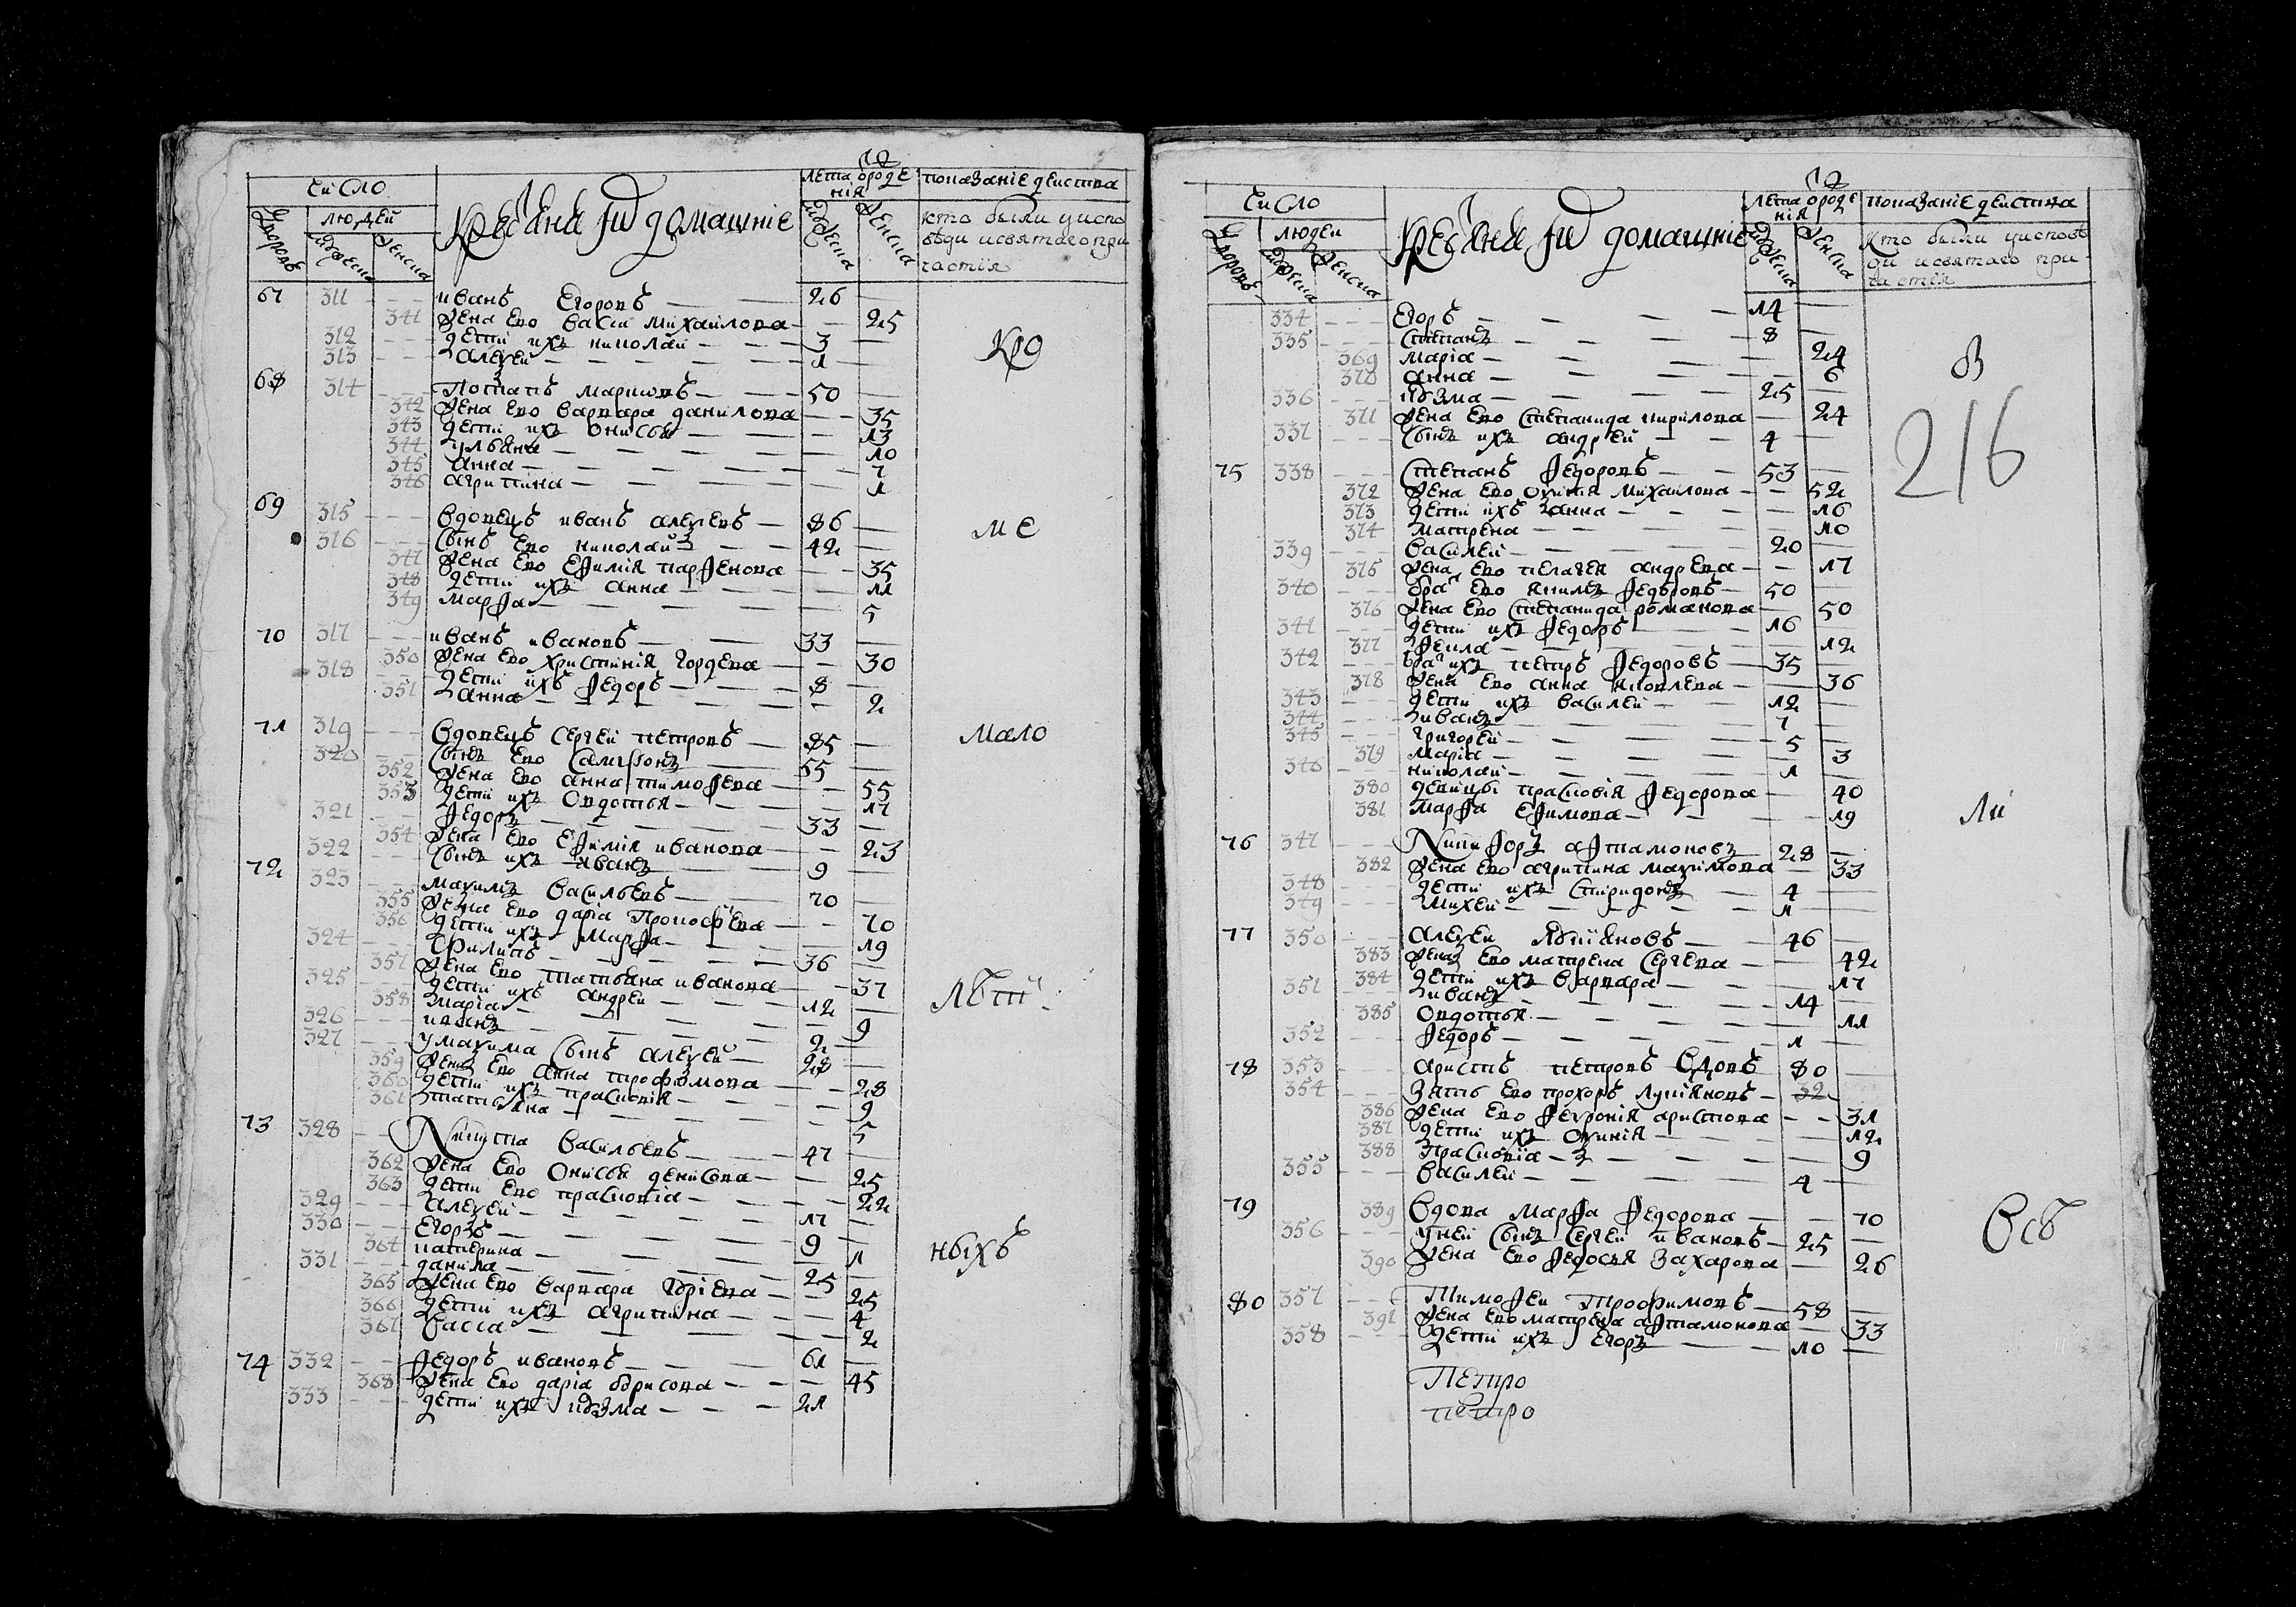 Число
людей
дворовъ
мужеска
женска
Кресяна и домашніе
лета о рожде
нія
мужеска
женска
показаніе действа
кто были у испо
веди и святаго при
частія
67 311 иванъ Егоровъ 26
341 жена Его васи михаилова 25
312 дети ихъ николаи 3
313 алеѯеи 1
68 314 Потапъ мартиовъ 50
342 жена Его варвара данилова 35
343 дети ихъ онисья 13
344 ульяна 10
345 анна 7
346 агрипина 1
69 315 вдовецъ иванъ алеѯеевъ 86
316 сынъ Его николаи 42
347 жена Его Еѳимія парѳенова 35
348 дети ихъ анна 11
349 марѳа 5
70 317 иванъ ивановъ 33
350 жена Его христинія гордева 30
318 дети ихъ ѳедоръ 8
351 анна 2
71 319 вдовецъ сергеи петровъ 85
320 сынъ Его сампсонъ 55
352 жена Его анна тимоѳева 55
353 дети ихъ овдотья 17
321 ѳедоръ 33
354 жена Его Еѳимія иванова 23
322 сынъ ихъ иванъ 9
72 323 маѯимъ васильевъ 70
355 жена Его дарія Прокофьева 70
356 дети ихъ марѳа 19
324 филипъ 36
357 жена Его татьяна иванова 37
325 дети ихъ андреи 12
358 марія 9
326 иванъ 2
327 у маѯима сынъ алеѯеи 28
359 жена Его анна трофимова 28
360 дети ихъ прасковія 9
361 татьяна 5
73 328 Никита васильевъ 47
362 жена Его Онисья денисова 25
363 дети Его прасковія 22
329 алеѯеи 17
330 Егоръ 9
364 катерина 1
331 данила 25
365 жена Его варвара Юріева 25
366 дети ихъ агрипина 4
367 васса 2
74 332 ѳедоръ ивановъ 61
368 жена Его дарія борисова 45
333 дети ихъ кузма 21
Кро
ме
мало
лѣт
ныхъ
Число
людеи
дворовъ
мужеска
женска
Кресяна и домашніе
лета о рожде
нія
мужеска
женска
показаніе действа
кто были у испове
ди и святаго при
частія
334 Егоръ 14
335 степанъ 8
369 марія 24
370 анна 6
336 кузма 25
371 жена Его степанида кирилова 24
337 сынъ ихъ андреи 4
75 338 степанъ ѳедоровъ 53
372 жена Его михаилова 52
373 дети ихъ анна 16
374 матрена 10
339 василеи 20
375 жена Его пелагея андрева 17
340 бра Его якимъ ѳедоровъ 50
376 жена Его степанида романова 50
341 дети ихъ ѳедоръ 16
377 ѳекла 12
342 бра ихъ петръ ѳедоровъ 35
378 жена Его анна яковлева 36
343 дети ихъ василеи 12
344 иванъ 7
345 григореи 5
379 марія 3
346 николаи 1
380 девицы прасковія ѳедорова 40
381 марѳа Еѳимова 19
76 347 Никифоръ артамоновъ 28
382 жена Его агрипина маѯимова 33
348 дети ихъ спиридонъ 4
349 михеи 1
77 350 алеѯеи лукіяновъ 46
383 жена Его матрена сергева 42
384 дети ихъ варвара 17
351 иванъ 14
385 овдотья 11
352 ѳедоръ 1
78 353 аристъ петровъ вдовъ 80
354 зять Его прохоръ лукіяновъ 32
386 жена Его ѳевронія аристова 31
387 дети ихъ 12
388 прасковія 9
355 василеи 4
79 389 вдова марѳа ѳедорова 70
356 у ней сынъ сергеи ивановъ 25
390 жена Его ѳедосья захарова 26
80 357 Тимоѳеи Трофимовъ 58
391 жена Его матрена артамонова 33
358 дети ихъ Егоръ 10
Петро
петро
в
216
ли
всѣ